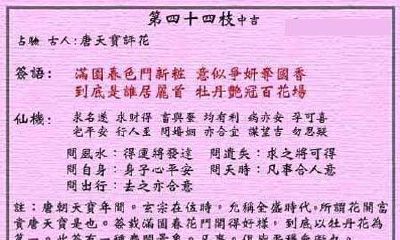 第四十四枝中吉
占驗 古人:唐天寶評花
簽語: 滿園春色鬥新粧 意似爭妍奪國香
到底是誰居麗首 牡丹艷冠百花場
仙機: 求名遂 求財得 畜與蚕 均有利 病亦安 孕可喜
宅平安 行人至 問婚姻 亦合宜 謀望吉 勿思疑
問風水:得運將發達 問遺失:求之將可得
問自身:身子心平安 問天時:凡事合人意
問出行:去之亦合意
註:唐朝天寶年間。玄宗在位時。允稱全盛時代。所謂花開富
貴唐天寶是也。簽栽滿園花卉開得好樣。到底以牡丹花為